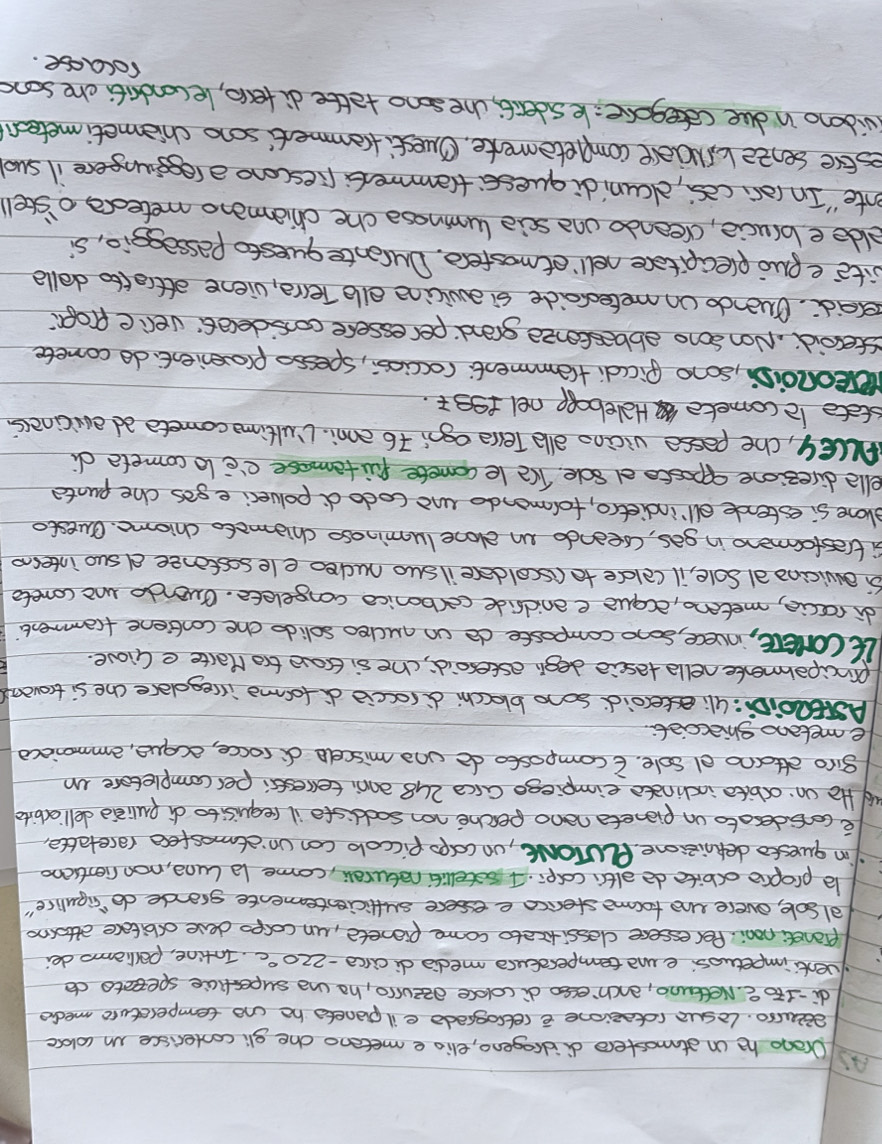 Urano ha un'atmosfera di idrogeno, elio e metano che gli conferisce un colore
azzurro. La sua rotazione è retrograda e il pianeta ha una temperatura media
di -170°. Nettuno, anch'esso di colore azzurro, ha una superficie spezzata da
venti impetuosi e una temperatura media di circa -220°C. Infine, parliamo dei
pianeti nani. Per essere classificato come pianeta, un corpo deve orbitare attorno
al sole, avere una forma sferica e essere sufficientemente grande da "ripulire"
la propria orbita da altri corpi. I satelliti naturali, come la luna, non rientrano
in questa definizione. PLUTONE, un corpo piccolo con un'atmosfera rarefatta,
è considerato un pianeta nano perché non soddisfa il requisito di pulizia dell'orbita
Ha un'orbita inclinata e impiega circa 248 anni terrestri per completare un
giro attorno al sole. È composto da una miscela di rocce, acqua, ammoniaca
e metano ghiacciati.
ASTEROIDI: Gli asteroidi sono blocchi di roccia di forma irregolare che si trovano
principalmente nella fascia degli asteroidi, che si trova tra Marte e Giove.
LE COMETE, invece, sono composte da un nucleo solido che contiene frammenti
di roccia, metano, acqua e anidride carbonica congelata. Quando una cometa
si avvicina al Sole, il calore fa riscaldare il suo nucleo e le sostanze al suo interno
si trasformano in gas, creando un alone luminoso chiamato chioma. Questo
alone si estende all'indietro, formando una coda di polveri e gas che punta
ella direzione opposta al sole. Tra le comete più famose c'è la cometa di
ALLEY, che passa vicino alla Terra ogni 76 anni. L'ultima cometa ad avvicinarsi
stata la cometa Halebopp nel 1997.
METEOROIDI, sono piccoli frammenti rocciosi, spesso provenienti da comete
steroidi. Non sono abbastanza grandi per essere considerati veri e propri
eroidi. Quando un meteoroide si avvicina alla Terra, viene attratto dalla
ità e può precipitare nell'atmosfera. Durante questo passaggio, si
alda e brucia, creando una scia luminosa che chiamano meteora o "stell
ente". In rari casi, alcuni di questi frammenti riescono a raggiungere il suol
estre senza bruciare completamente. Questi frammenti sono chiamati meteori
ividono in due categorie: le sideriti, che sono fatte di ferro, le condriti che sono
rocciose.